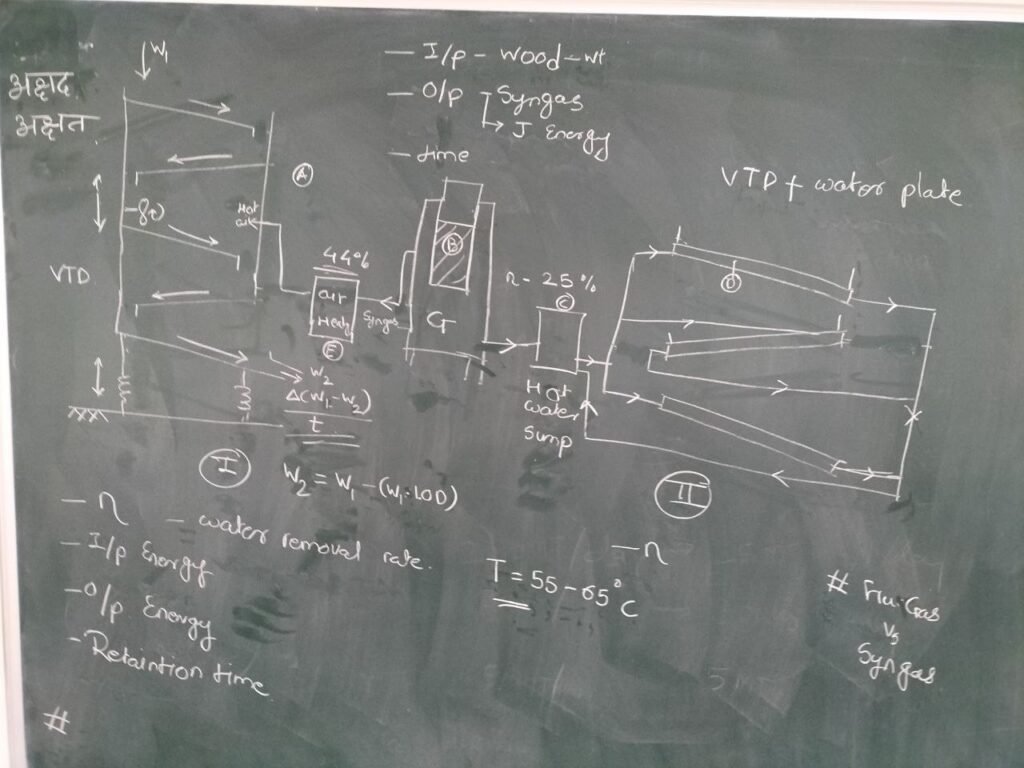 अक्षद
अक्षत
W₁
— I/p - wood - wt
— O/p - Syngas
↳ J Energy
— time
VTD + water plate
A
Hot
air
VTD
44%
air
Heatr
E
Syngas
B
G
η - 25 %
C
Hot
water
Sump
D
W₂
Δ(W₁-W₂)
t
I
W₂ = W₁ - (W₁. LOD)
II
— η
— water removal rate.
— I/p Energy
- O/p. Energy
- Retaintion time
#
T = 55 - 65°C
— η
# Flu Gas
Vs
Syngas